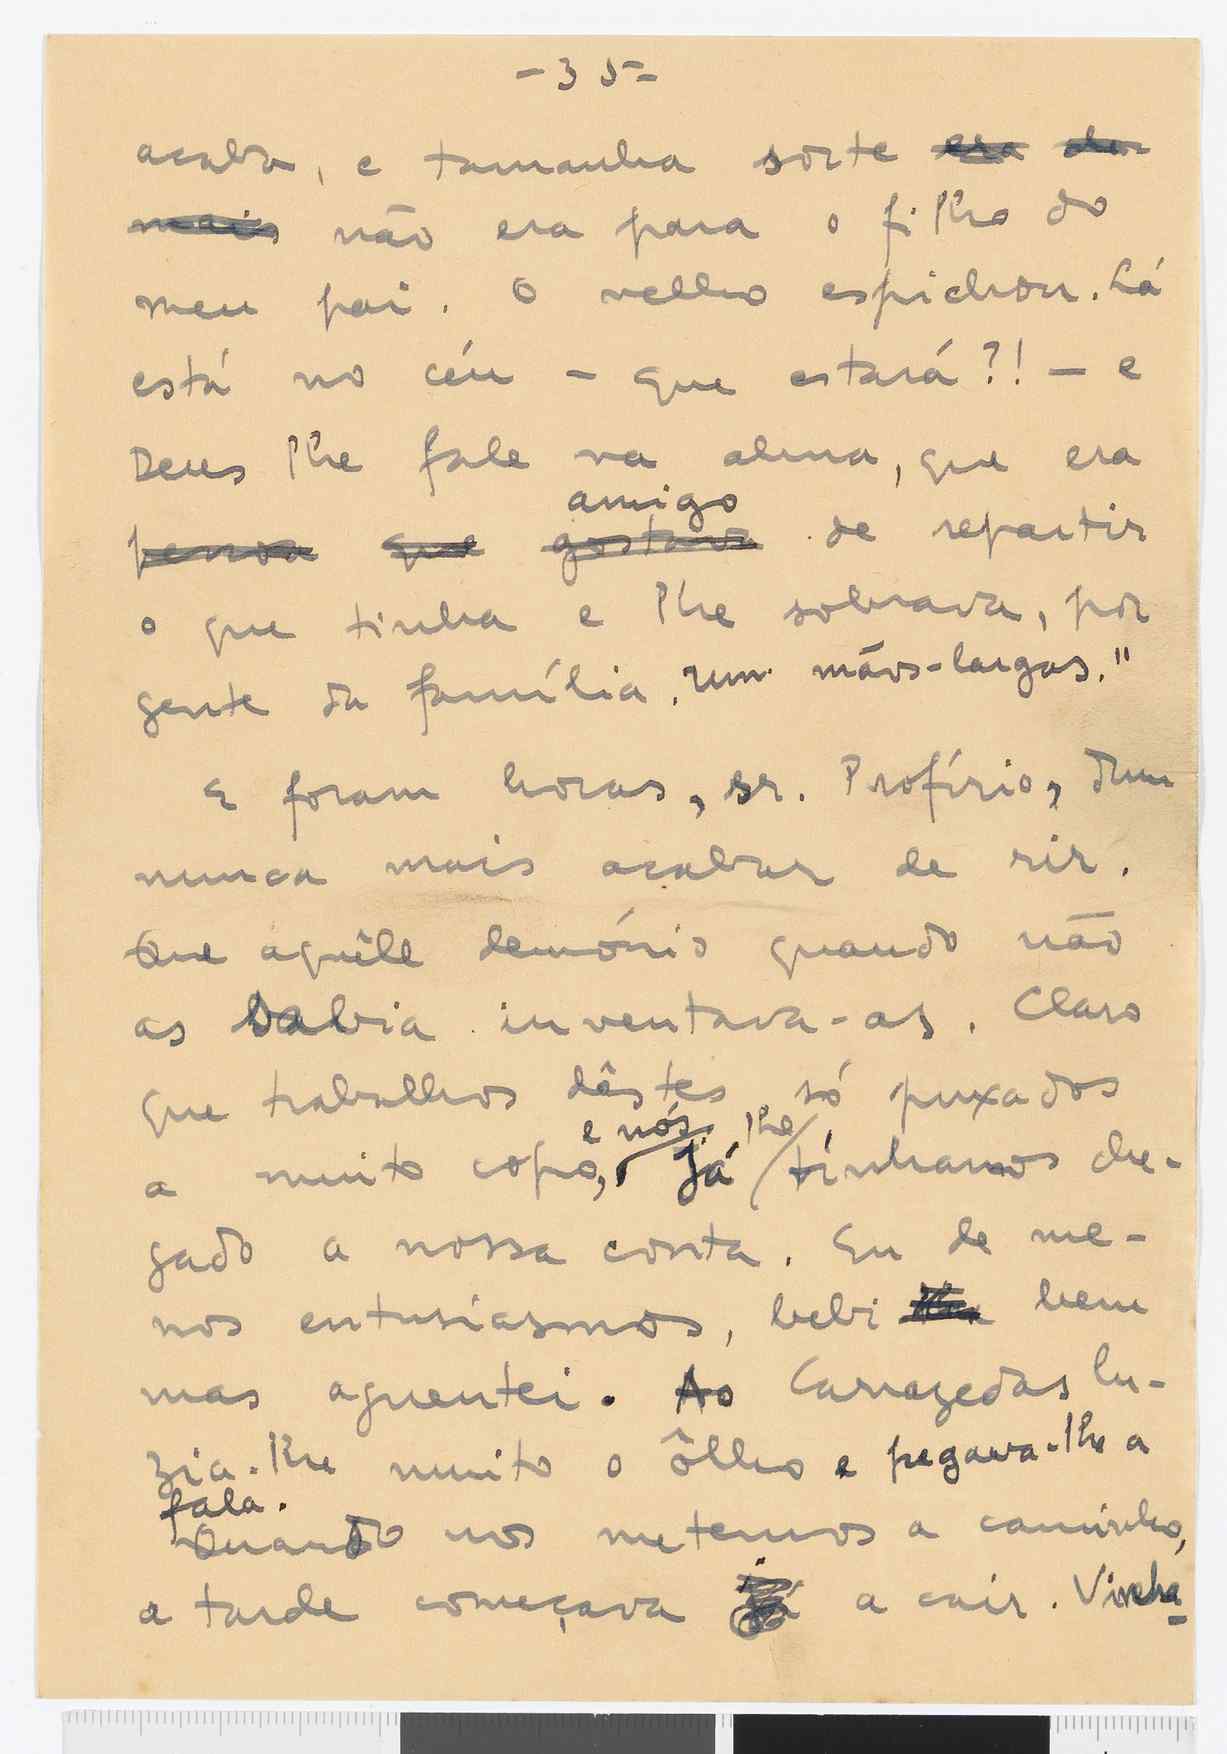 -35-
acaba, e tamanha sorte era de
mais não era para o filho do
meu pai. O velho espichou. Lá
está no céu - que estará?! - e
Deus lhe fale na alma, que era
amigo
pessoa que gostava de repartir
o que tinha e lhe sobrava, por
gente da família. Um mãos-largas."
E foram horas, sr. Profírio, dum
nunca mais acabar de rir.
Que aquêle demónio quando não
as sabia inventava-as. Claro
que trabalhos dêstes só puxados
e nós lhe
a muito copo, já tínhamos che-
gado a nossa conta. Eu de me-
nos entusiasmos, bebi bem
mas aguentei. Ao Carrazedas lu-
zia-lhe muito o ôlho e pegava-lhe a
fala.
Quando nos metemos a caminho,
a tarde começava já a cair. Vinha-